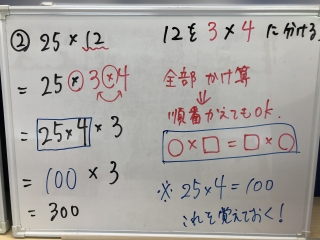 ② 25 × 12
= 25 × 3 × 4
= 25×4 × 3
= 100 × 3
= 300
12を 3 × 4 に分ける
全部 かけ算
↓
順番かえてもOK.
○ × □ = □ × ○
※ 25×4=100
これを覚えておく!